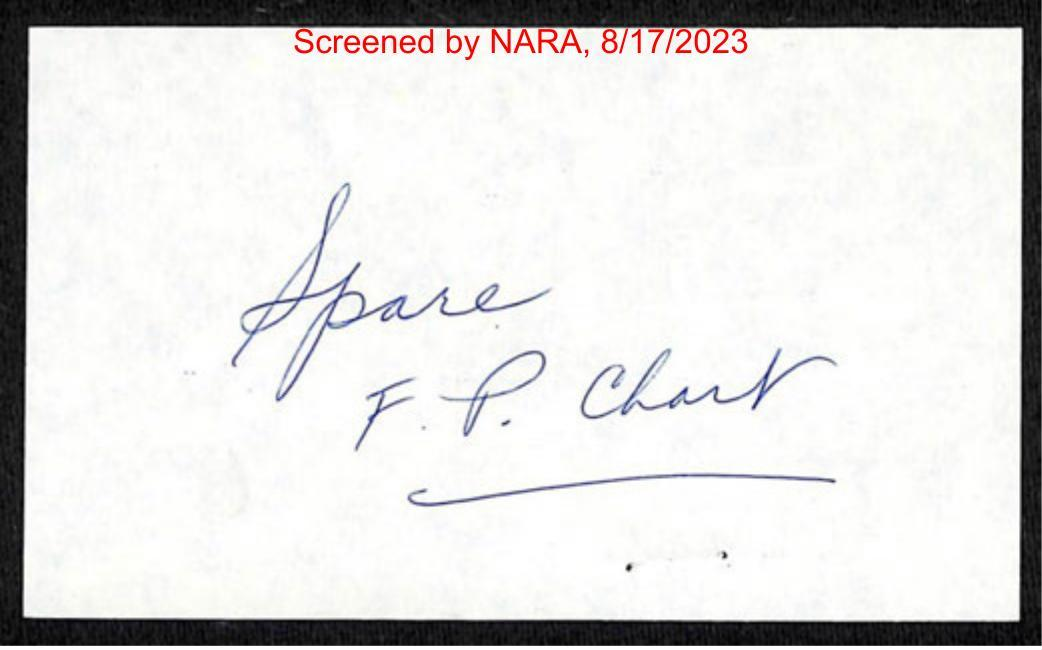 Screened by NARA, 8/17/2023
Spare
F. P. Chart